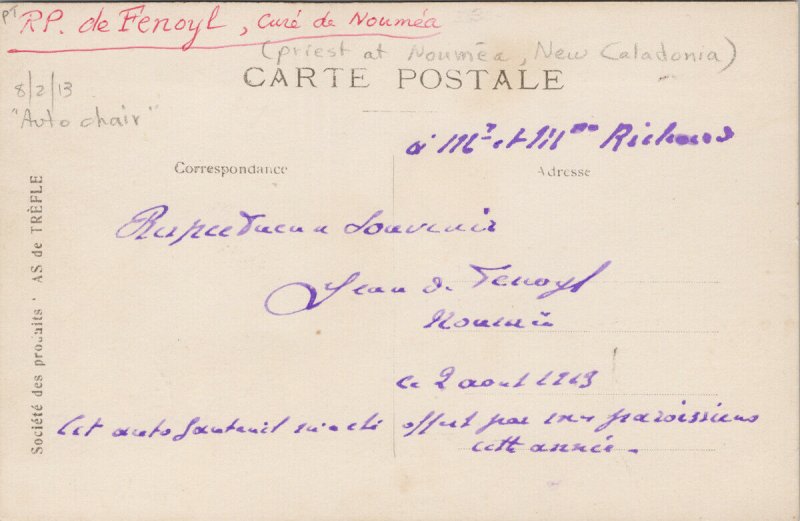 PT
RP. de Fenoyl, Curé de Nouméa
(priest at Nouméa, New Caladonia)
CARTE POSTALE
8/2/13
"Auto chair"
à Mr et Mme Richard
Correspondance
Adresse
Respectueux Souvenir
Jean de Fenoyl
Nouméa
Le 2 aout 1913
Cet auto fauteuil m'a été offert par mes paroissiens
cette année.
Société des produits " AS de TRÈFLE